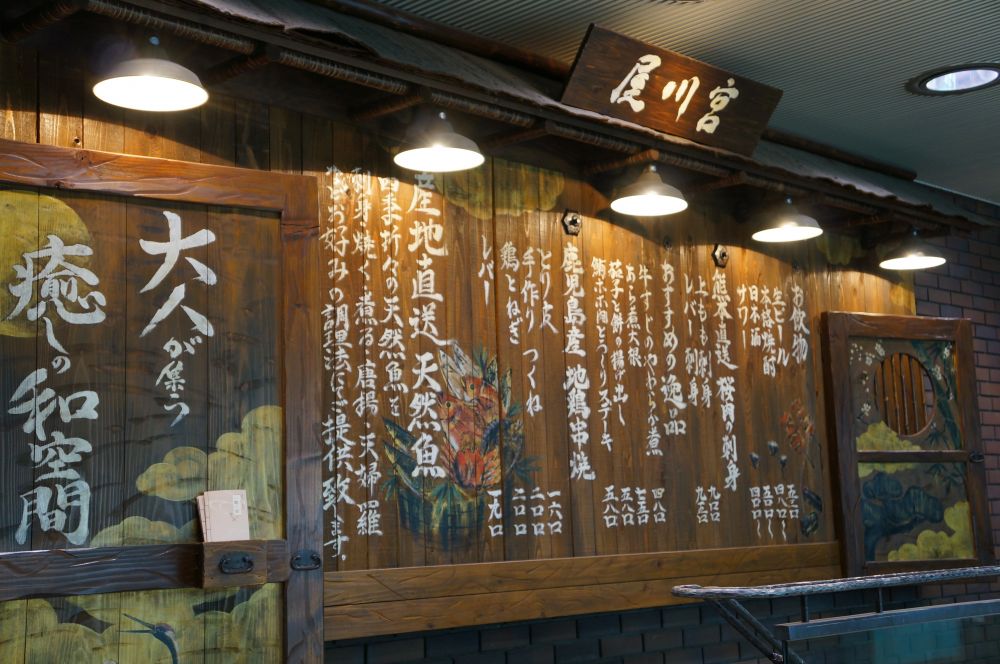 宮川屋
お飲物
生ビール
本格焼酎
日本酒
サワー
熊本直送 桜肉の刺身
上もも刺身
レバー刺身
おすすめの逸品
牛すじのやわらか煮 四八〇
あら煮大根
茄子と餅の揚げ出し 五八〇
鮪ホホ肉とろーりステーキ 五八〇
鹿児島産 地鶏串焼
とり皮 一六〇
手作り つくね 二〇〇
鶏とねぎ 二〇〇
レバー 一九〇
産地直送 天然魚
四季折々の天然魚を
刺身、焼く、煮る、唐揚、天婦羅
などお好みの調理法にてご提供致します。
大人が集う
癒しの和空間